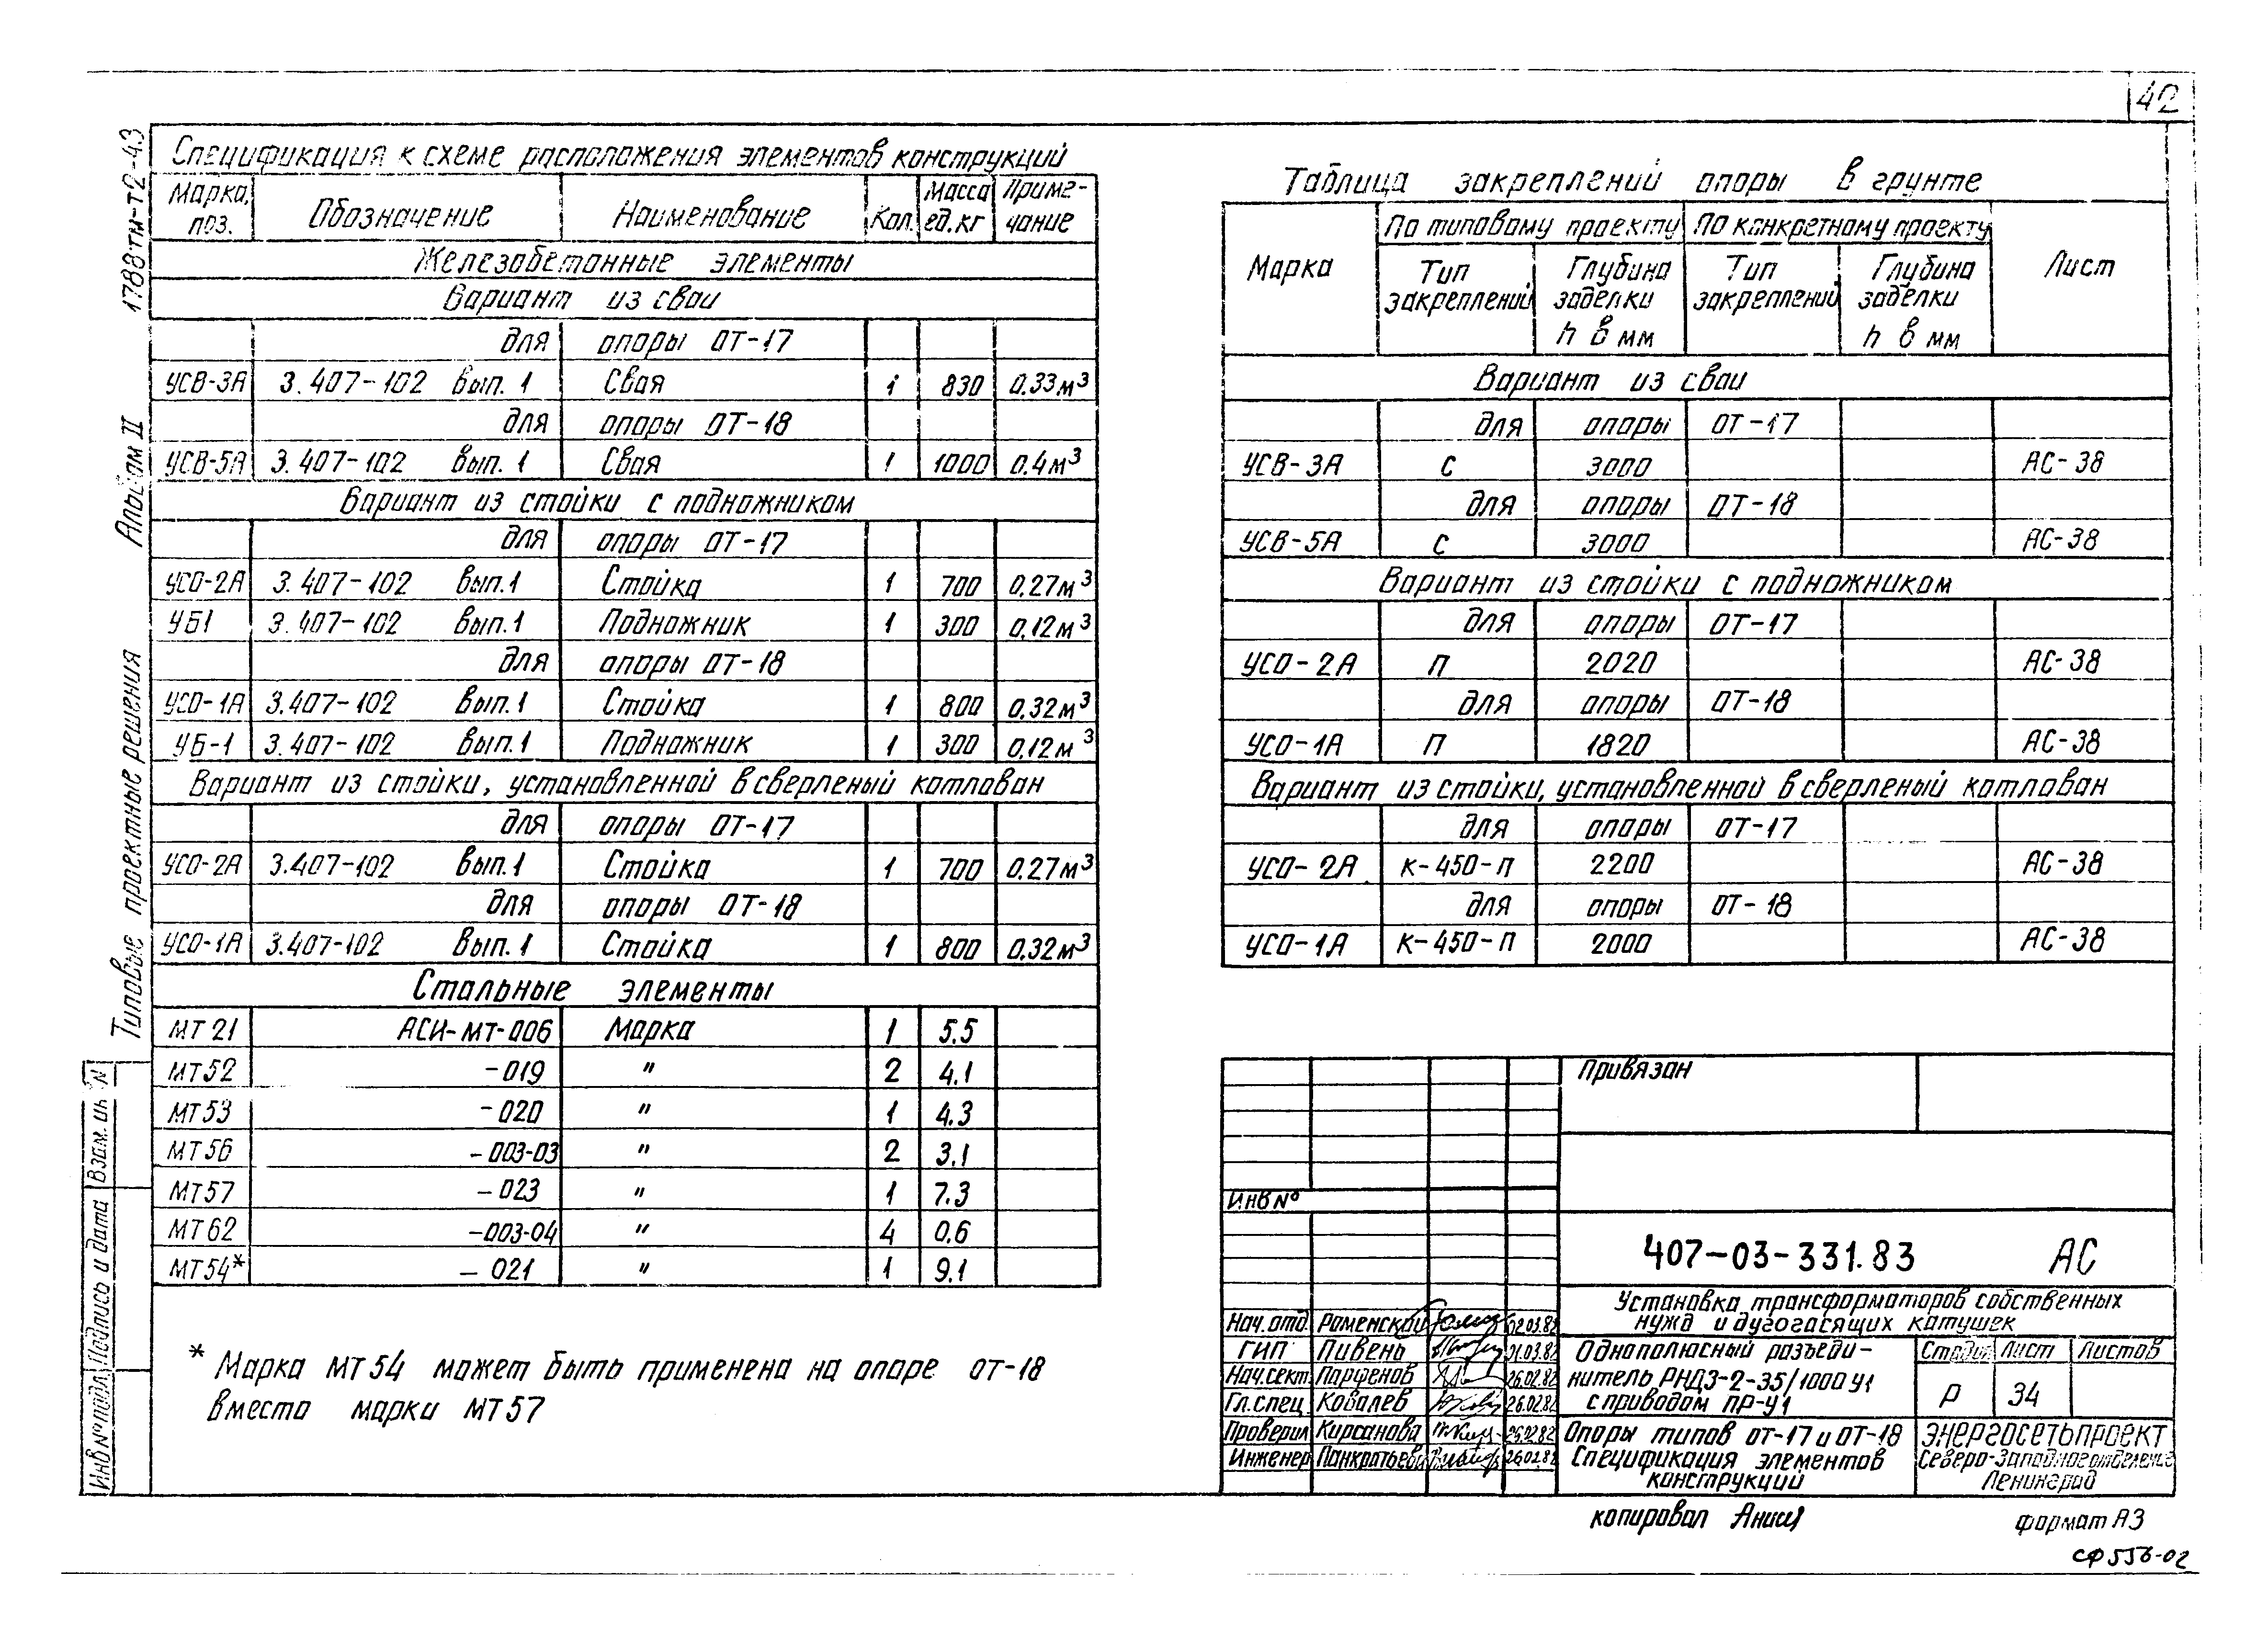 42
1788тм-т2-43
Альбом II
Типовые проектные решения
Взам. инв N
Подпись и дата
Инв N° подл.
Спецификация к схеме расположения элементов конструкций
Марка, поз. Обозначение Наименование Кол. Масса ед.кг Примечание
Железобетонные элементы
Вариант из сваи
для опоры ОТ-17
УСВ-3А 3.407-102 вып. 1 Свая 1 830 0.33м³
для опоры ОТ-18
УСВ-5А 3.407-102 вып. 1 Свая 1 1000 0.4м³
Вариант из стойки с подножником
для опоры ОТ-17
УСО-2А 3.407-102 вып.1 Стойка 1 700 0.27м³
УБ1 3.407-102 вып.1 Подножник 1 300 0,12м³
для опоры ОТ-18
УСО-1А 3.407-102 вып.1 Стойка 1 800 0,32м³
УБ-1 3.407-102 вып.1 Подножник 1 300 0,12м³
Вариант из стойки, установленной в сверленый котлован
для опоры ОТ-17
УСО-2А 3.407-102 вып.1 Стойка 1 700 0.27м³
для опоры ОТ-18
УСО-1А 3.407-102 вып.1 Стойка 1 800 0,32м³
Стальные элементы
МТ21 АСИ-МТ-006 Марка 1 5.5
МТ52 -019 " 2 4.1
МТ53 -020 " 1 4.3
МТ56 -003-03 " 2 3.1
МТ57 -023 " 1 7.3
МТ62 -003-04 " 4 0.6
МТ54* -021 " 1 9.1
* Марка МТ54 может быть применена на опоре ОТ-18
вместо марки МТ57
Таблица закреплений опоры в грунте
Марка По типовому проекту По конкретному проекту Лист
Тип закреплений Глубина заделки h в мм Тип закреплений Глубина заделки h в мм
Вариант из сваи
для опоры ОТ-17
УСВ-3А С 3000 АС-38
для опоры ОТ-18
УСВ-5А С 3000 АС-38
Вариант из стойки с подножником
для опоры ОТ-17
УСО-2А П 2020 АС-38
для опоры ОТ-18
УСО-1А П 1820 АС-38
Вариант из стойки, установленной в сверленый котлован
для опоры ОТ-17
УСО-2А К-450-П 2200 АС-38
для опоры ОТ-18
УСО-1А К-450-П 2000 АС-38
Привязан
Инв N°
407-03-331.83 АС
Установка трансформаторов собственных
нужд и дугогасящих катушек
Нач. отд. Роменский 02.03.82
ГИП Пивень 01.03.82
Нач.сект. Парфенов 26.02.82
Гл.спец. Ковалев 26.02.82
Проверил Кирсанова 26.02.82
Инженер Панкратьева 26.02.82
Однополюсный разъеди-
нитель РНДЗ-2-35/1000 У1
с приводом ПР-У1
Стадия Лист Листов
Р 34
Опоры типов ОТ-17 и ОТ-18
Спецификация элементов
конструкций
ЭНЕРГОСЕТЬПРОЕКТ
Северо-Западное отделение
Ленинград
копировал
формат А3
СФ 556-02